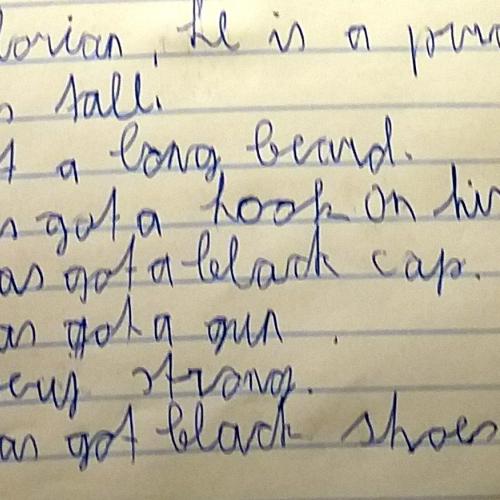 lorian, he is a
s tall.
t a long beard.
s got a hook on his
as got a black cap.
as got a gun.
ery strong.
as got black shoes